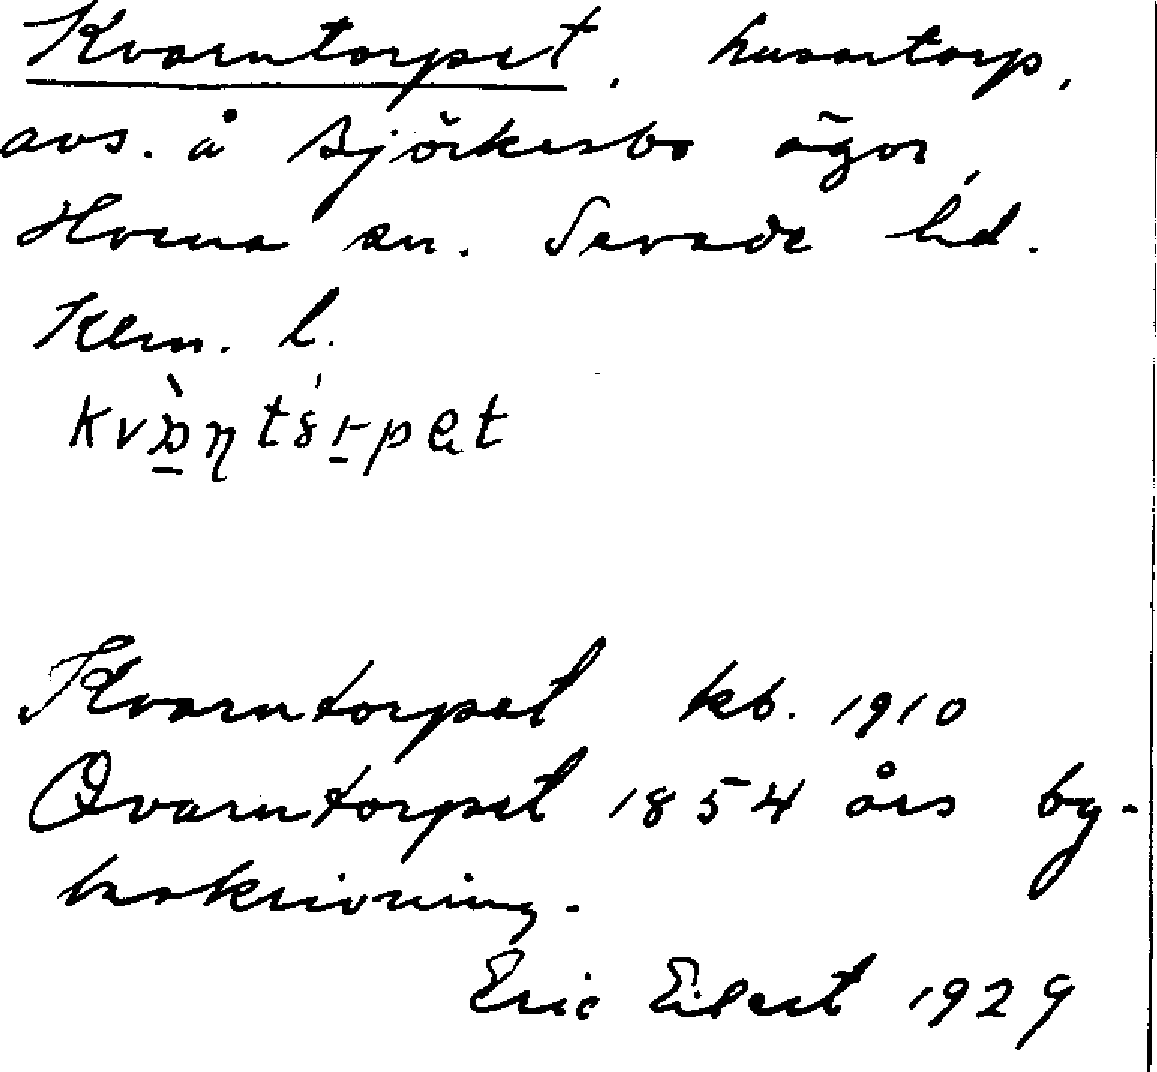 Kvarntorpet, husartorp,
avs. å Björkesbo ägor,
Hvena sn. Sevede hd.
Klm. l.
Kvarntorpet kb. 1910
Qvarntorpet 1854 års by-
beskrivning.
Eric Eilert 1929